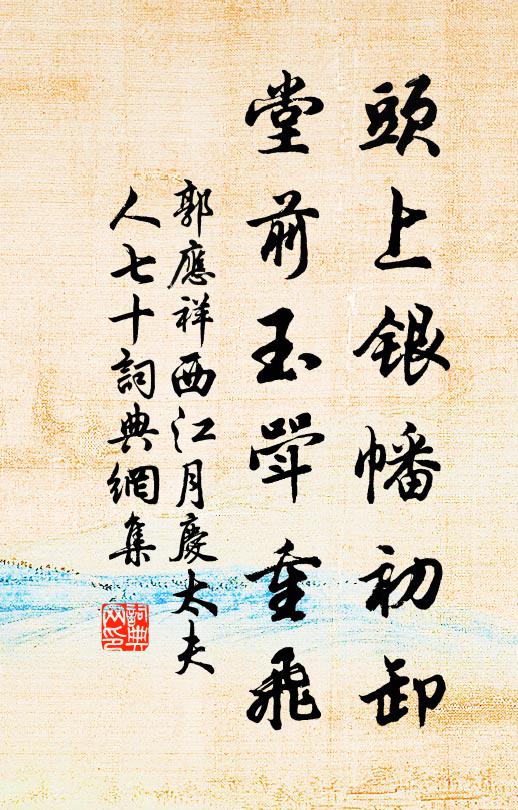 頭上銀幡初卸
堂前玉斝重飛
郭應祥西江月慶太夫
人七十詞典網集
詞典
网印